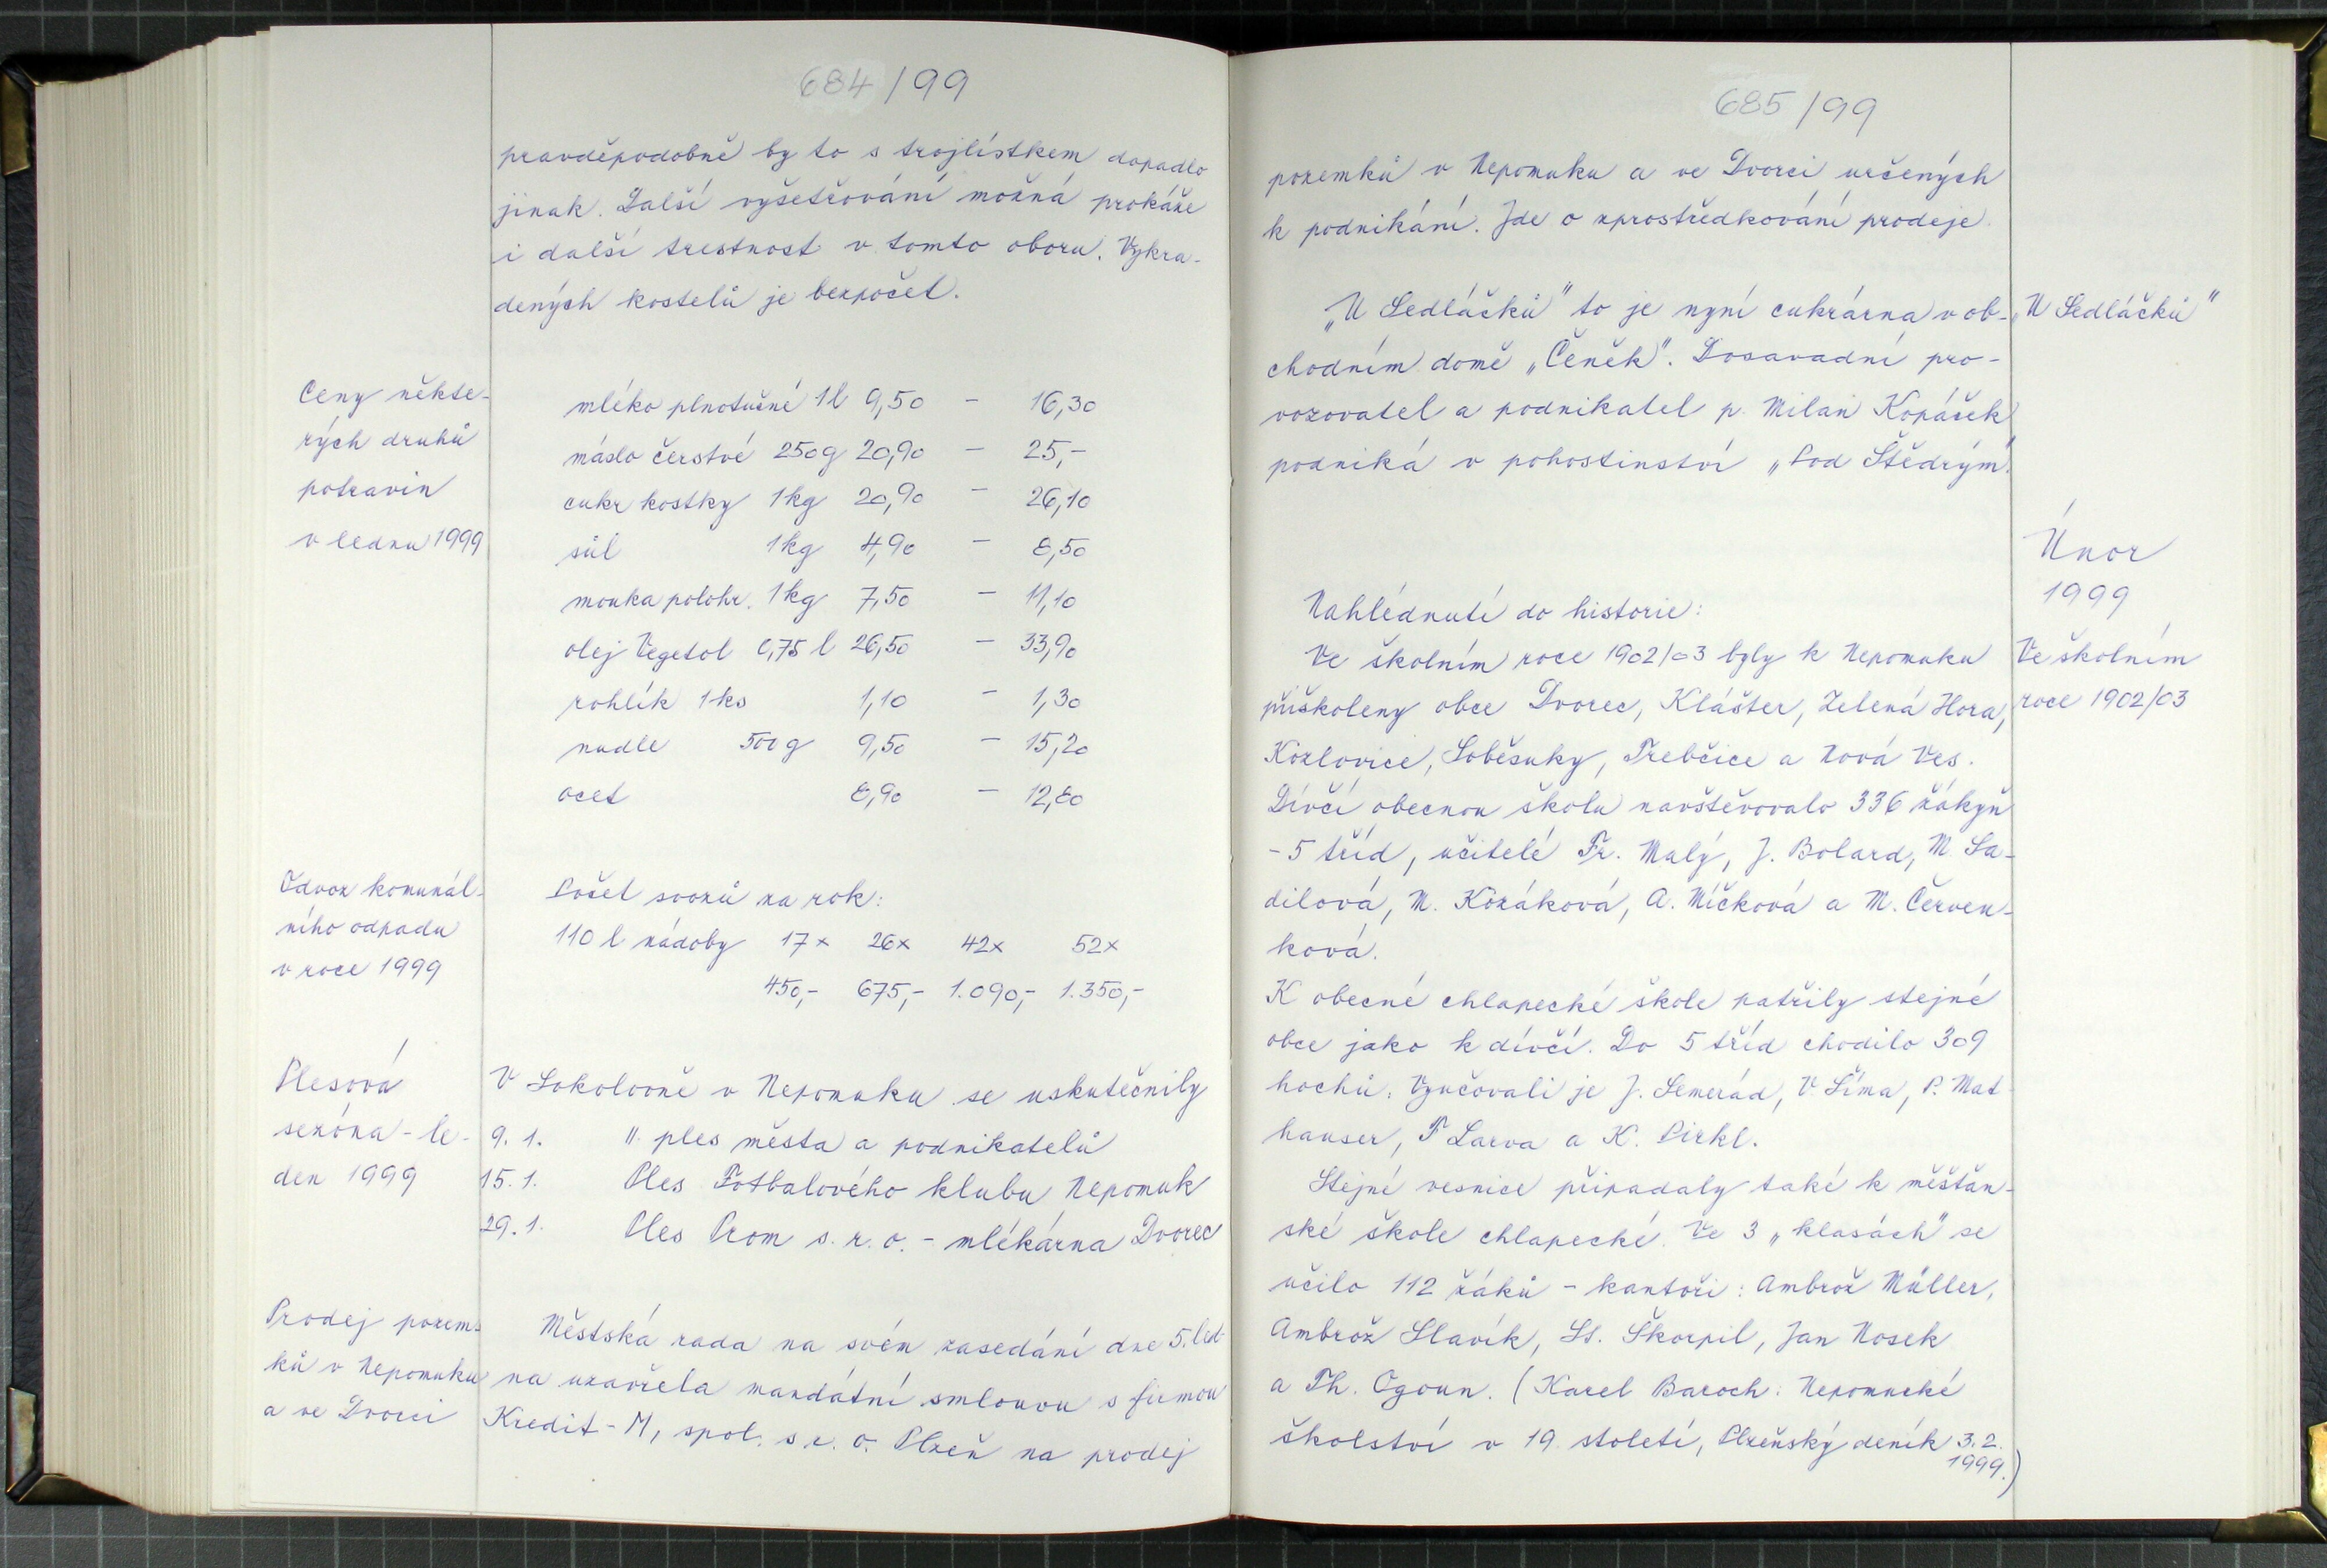 684/99
pravděpodobně by to s trojlístkem dopadlo
jinak. Další vyšetřování možná prokáže
i další trestnost v tomto oboru. Vykra-
dených kostelů je bezpočet.
Ceny někte-
rých druhů
potravin
v lednu 1999
mléko plnotučné 1l 9,50 - 16,30
máslo čerstvé 250g 20,90 - 25,-
cukr kostky 1kg 20,90 - 26,10
sůl 1kg 4,90 - 8,50
mouka polohr. 1kg 7,50 - 11,10
olej Vegetol 0,75 l 26,50 - 33,90
rohlík 1ks 1,10 - 1,30
nudle 500g 9,50 - 15,20
ocet 8,90 - 12,80
Odvoz komunál-
ního odpadu
v roce 1999
Počet svozů za rok:
110 l nádoby 17x 26x 42x 52x
450,- 675,- 1.090,- 1.350,-
Plesová
sezóna - le-
den 1999
V Sokolovně v Nepomuku se uskutečnily
9. 1. II. ples města a podnikatelů
15. 1. Ples Fotbalového klubu Nepomuk
29. 1. Ples Prom s. r. o. - mlékárna Dvorec
Prodej pozem-
ků v Nepomuku
a ve Dvorci
Městská rada na svém zasedání dne 5. led-
na uzavřela mandátní smlouvu s firmou
Kredit - M, spol. s r. o. Plzeň na prodej
685/99
pozemků v Nepomuku a ve Dvorci určených
k podnikání. Jde o zprostředkování prodeje.
„U Sedláčků" to je nyní cukrárna v ob-
chodním domě „Čeněk". Dosavadní pro-
vozovatel a podnikatel p. Milan Kopáček
podniká v pohostinství „Pod Štědrým".
„U Sedláčků"
Únor
1999
Nahlédnutí do historie:
Ve školním roce 1902/03 byly k Nepomuku
přiškoleny obce Dvorec, Klášter, Zelená Hora,
Kozlovice, Soběsuky, Třebčice a Nová Ves.
Dívčí obecnou školu navštěvovalo 336 žákyň
- 5 tříd, učitelé Fr. Malý, J. Bolard, M. Sa-
dilová, M. Kozáková, A. Míčková a M. Červen-
ková.
K obecné chlapecké škole patřily stejné
obce jako k dívčí. Do 5 tříd chodilo 309
hochů. Vyučovali je J. Semerád, V. Šíma, P. Mat-
hauser, F. Larva a K. Pirkl.
Stejné vesnice připadaly také k měšťan-
ské škole chlapecké. Ve 3 „klasách" se
učilo 112 žáků - kantoři: Ambrož Müller,
Ambrož Slavík, St. Škorpil, Jan Nosek
a Th. Ogoun. (Karel Baroch: Nepomucké
školství v 19. století, Plzeňský deník 3. 2.
1999.)
Ve školním
roce 1902/03